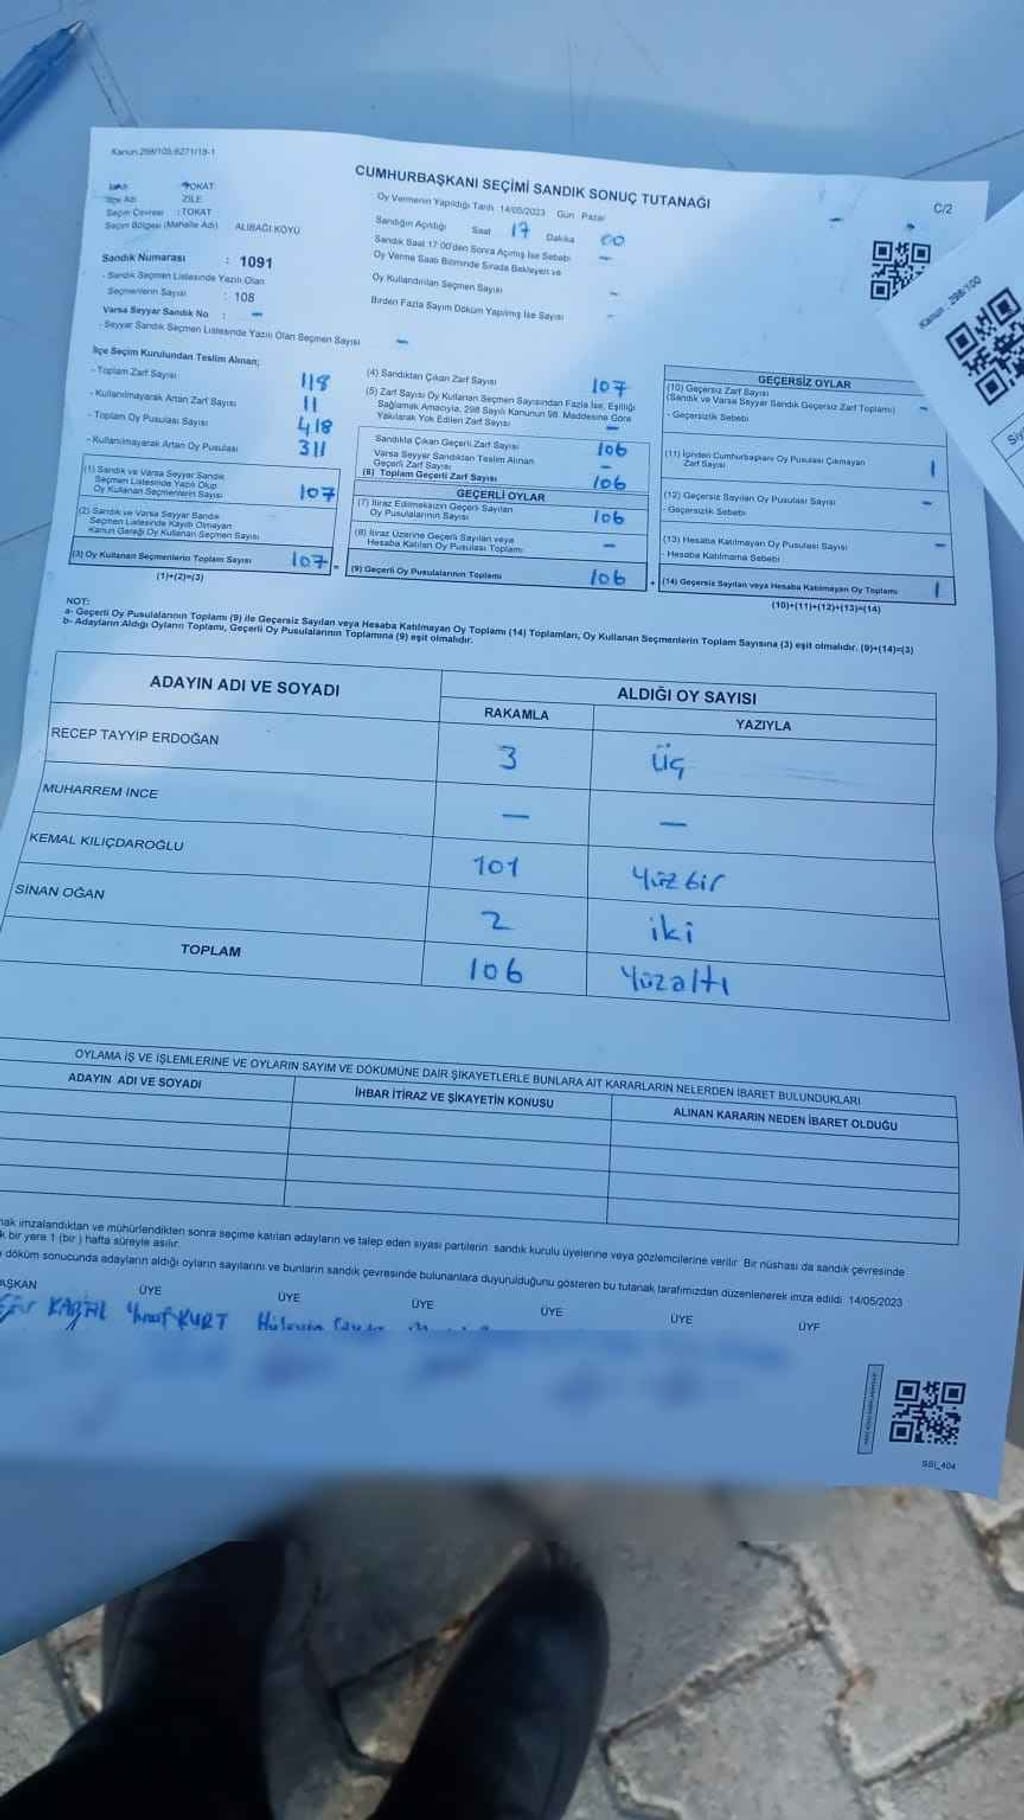 Kanun 298/105-6271/19-1
CUMHURBAŞKANI SEÇİMİ SANDIK SONUÇ TUTANAĞI
C/2
TOKAT
İlçe Adı ZİLE
Seçim Çevresi : TOKAT
Seçim Bölgesi (Mahalle Adı) ALIBAĞI KÖYÜ
Sandık Numarası : 1091
- Sandık Seçmen Listesinde Yazılı Olan
Seçmenlerin Sayısı : 108
Varsa Seyyar Sandık No : -
- Seyyar Sandık Seçmen Listesinde Yazılı Olan Seçmen Sayısı -
Oy Vermenin Yapıldığı Tarih 14/05/2023 Gün Pazar
Sandığın Açıldığı Saat 17 Dakika 00
Sandık Saat 17:00'den Sonra Açılmış İse Sebebi -
Oy Verme Saati Bitiminde Sırada Bekleyen ve
Oy Kullandırılan Seçmen Sayısı -
Birden Fazla Sayım Döküm Yapılmış İse Sayısı -
Kanun : 298/100
İlçe Seçim Kurulundan Teslim Alınan;
- Toplam Zarf Sayısı 118
- Kullanılmayarak Artan Zarf Sayısı 11
- Toplam Oy Pusulası Sayısı 418
- Kullanılmayarak Artan Oy Pusulası 311
(1) Sandık ve Varsa Seyyar Sandık
Seçmen Listesinde Yazılı Olup
Oy Kullanan Seçmenlerin Sayısı 107
(2) Sandık ve Varsa Seyyar Sandık
Seçmen Listesinde Kayıtlı Olmayan
Kanun Gereği Oy Kullanan Seçmen Sayısı
(3) Oy Kullanan Seçmenlerin Toplam Sayısı 107 =
(1)+(2)=(3)
(4) Sandıktan Çıkan Zarf Sayısı 107
(5) Zarf Sayısı Oy Kullanan Seçmen Sayısından Fazla İse, Eşitliği
Sağlamak Amacıyla, 298 Sayılı Kanunun 98. Maddesine Göre
Yakılarak Yok Edilen Zarf Sayısı -
Sandıkta Çıkan Geçerli Zarf Sayısı 106
Varsa Seyyar Sandıktan Teslim Alınan
Geçerli Zarf Sayısı -
(6) Toplam Geçerli Zarf Sayısı 106
GEÇERLİ OYLAR
(7) İtiraz Edilmeksizin Geçerli Sayılan
Oy Pusulalarının Sayısı 106
(8) İtiraz Üzerine Geçerli Sayılan veya
Hesaba Katılan Oy Pusulası Toplamı -
(9) Geçerli Oy Pusulalarının Toplamı 106 +
GEÇERSİZ OYLAR
(10) Geçersiz Zarf Sayısı
(Sandık ve Varsa Seyyar Sandık Geçersiz Zarf Toplamı) -
- Geçersizlik Sebebi
(11) İçinden Cumhurbaşkanı Oy Pusulası Çıkmayan
Zarf Sayısı 1
(12) Geçersiz Sayılan Oy Pusulası Sayısı -
- Geçersizlik Sebebi
(13) Hesaba Katılmayan Oy Pusulası Sayısı -
- Hesaba Katılmama Sebebi
(14) Geçersiz Sayılan veya Hesaba Katılmayan Oy Toplamı 1
(10)+(11)+(12)+(13)=(14)
NOT:
a- Geçerli Oy Pusulalarının Toplamı (9) ile Geçersiz Sayılan veya Hesaba Katılmayan Oy Toplamı (14) Toplamları, Oy Kullanan Seçmenlerin Toplam Sayısına (3) eşit olmalıdır. (9)+(14)=(3)
b- Adayların Aldığı Oyların Toplamı, Geçerli Oy Pusulalarının Toplamına (9) eşit olmalıdır.
ADAYIN ADI VE SOYADI
ALDIĞI OY SAYISI
RAKAMLA YAZIYLA
RECEP TAYYİP ERDOĞAN 3 üç
MUHARREM İNCE - -
KEMAL KILIÇDAROĞLU 101 Yüzbir
SİNAN OĞAN 2 iki
TOPLAM 106 Yüzaltı
OYLAMA İŞ VE İŞLEMLERİNE VE OYLARIN SAYIM VE DÖKÜMÜNE DAİR ŞİKAYETLERLE BUNLARA AİT KARARLARIN NELERDEN İBARET BULUNDUKLARI
ADAYIN ADI VE SOYADI İHBAR İTİRAZ VE ŞİKAYETİN KONUSU ALINAN KARARIN NEDEN İBARET OLDUĞU
imzalandıktan ve mühürlendikten sonra seçime katılan adayların ve talep eden siyasi partilerin sandık kurulu üyelerine veya gözlemcilerine verilir. Bir nüshası da sandık çevresinde
bir yere 1 (bir ) hafta süreyle asılır.
döküm sonucunda adayların aldığı oyların sayılarını ve bunların sandık çevresinde bulunanlara duyurulduğunu gösteren bu tutanak tarafımızdan düzenlenerek imza edildi. 14/05/2023
AŞKAN ÜYE ÜYE ÜYE ÜYE ÜYE ÜYE
KURT
SSI_404